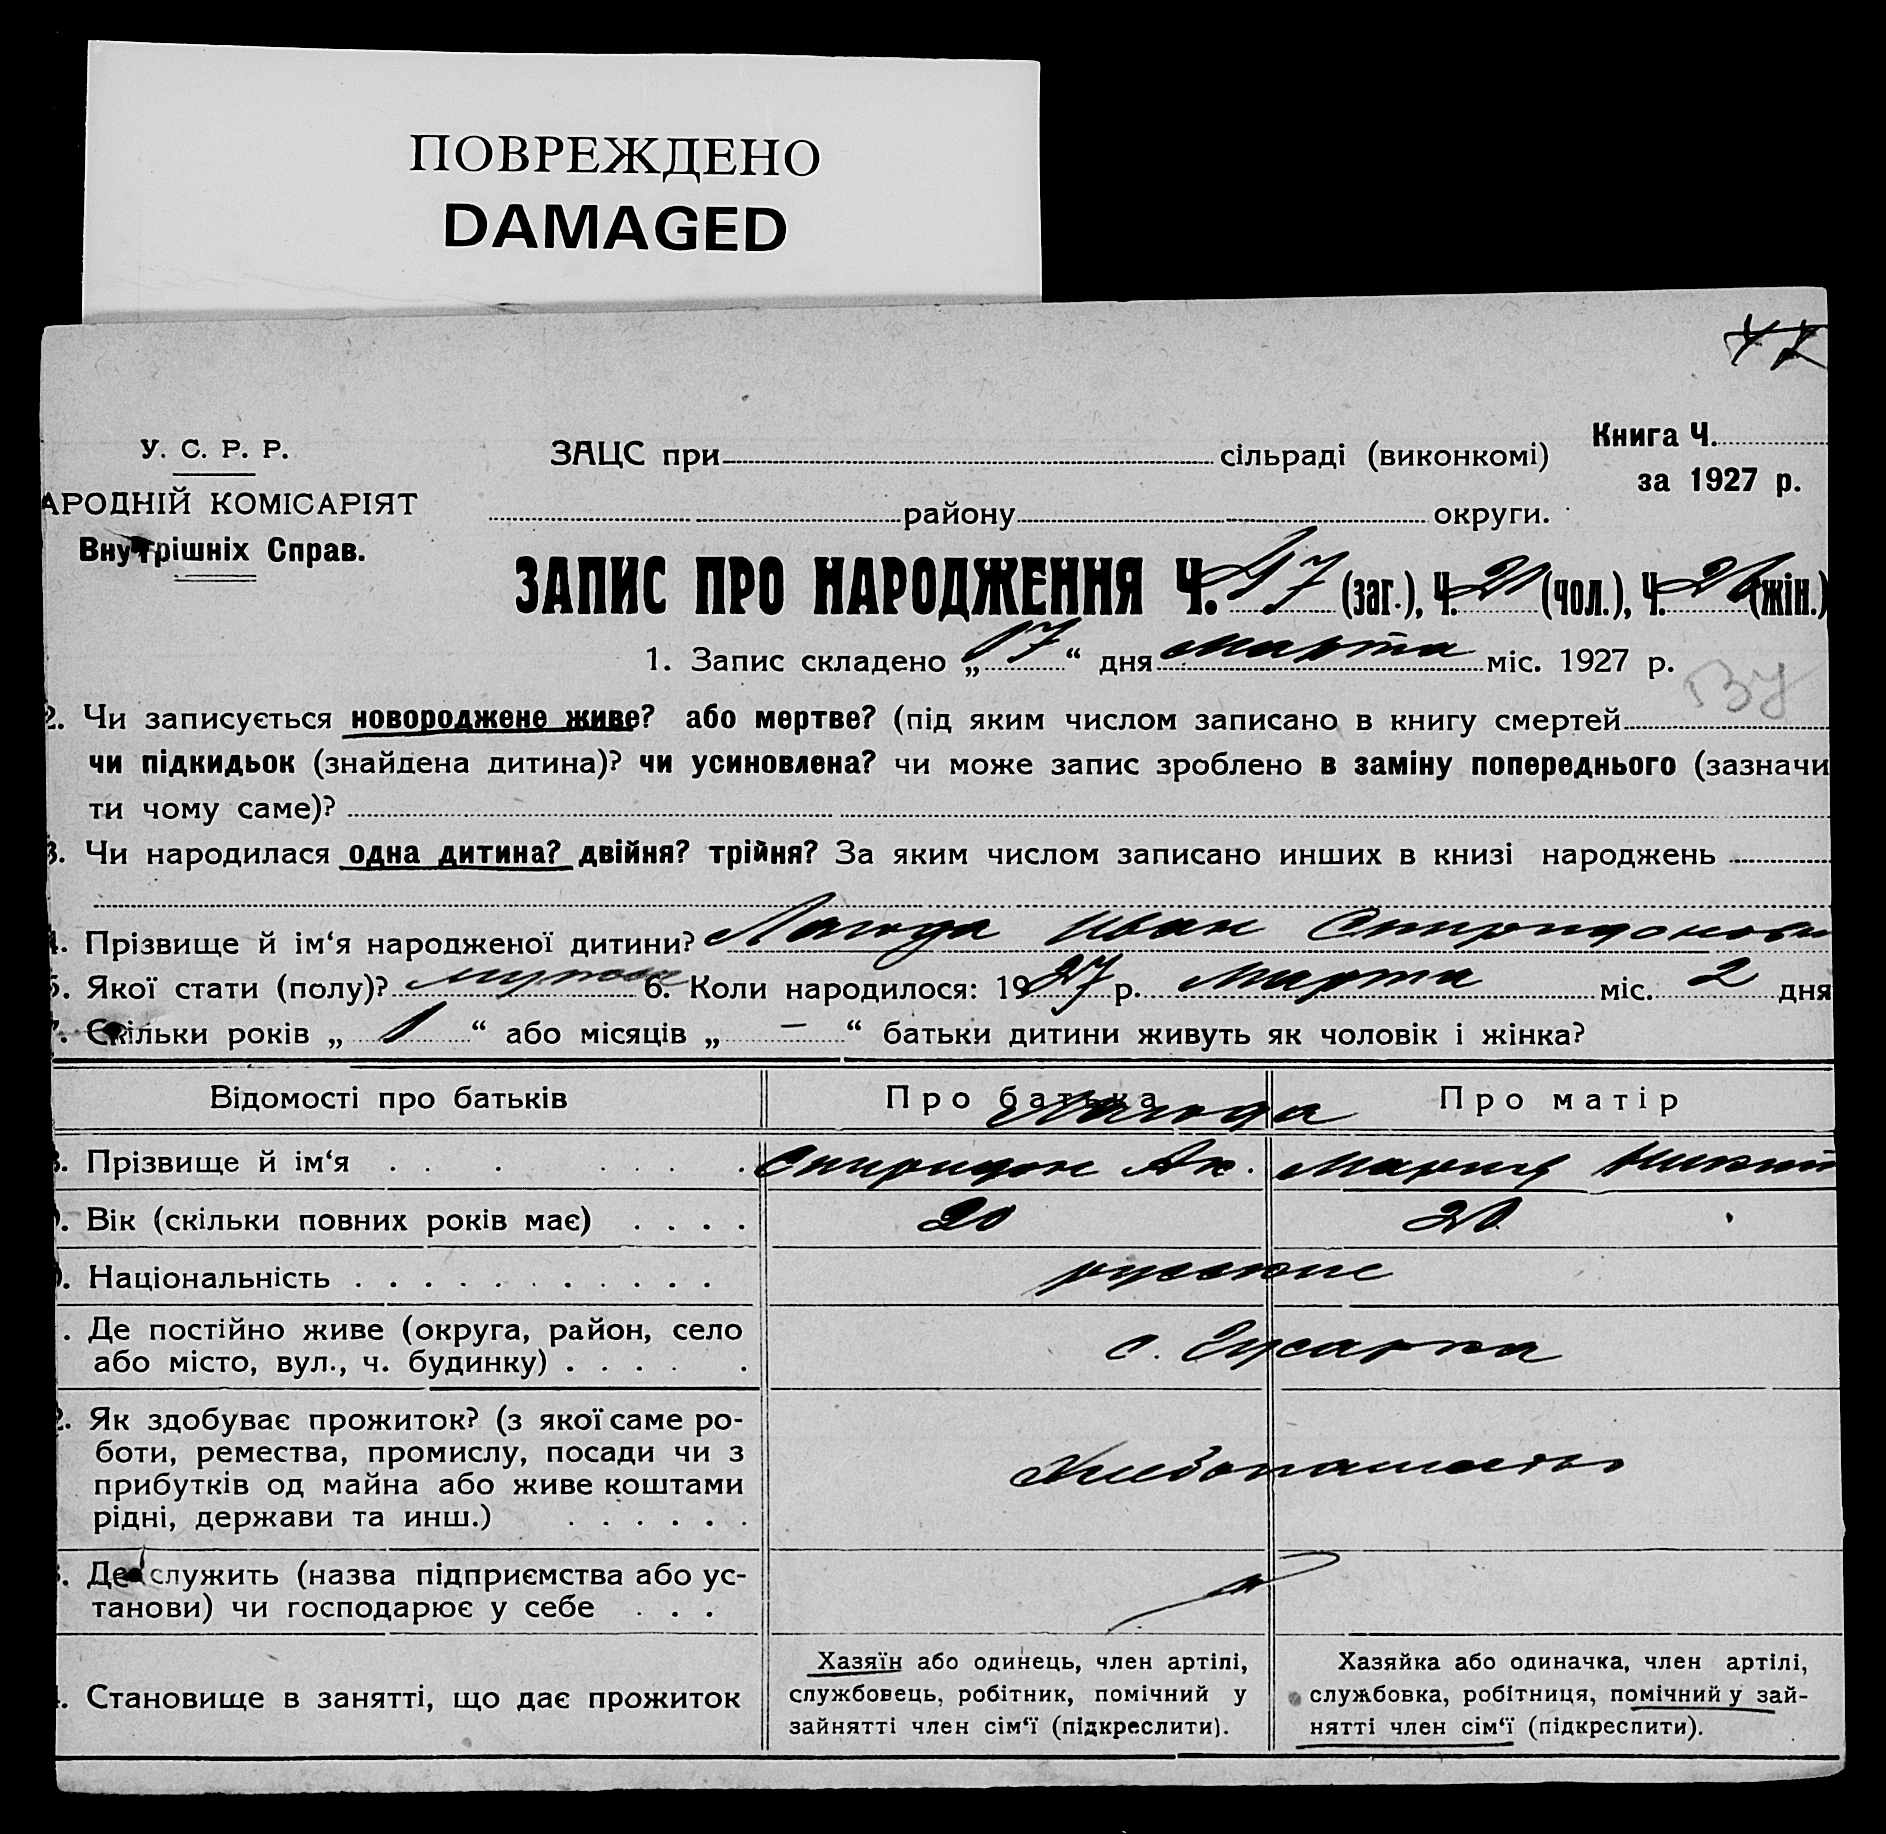 ПОВРЕЖДЕНО
DAMAGED
У. С. Р. Р.
АРОДНІЙ КОМІСАРІЯТ
Внутрішніх Справ.
ЗАЦС при сільраді (виконкомі)
Книга Ч.
за 1927 р.
району округи.
ЗАПИС ПРО НАРОДЖЕННЯ Ч. 47 (заг.), Ч. (чол.), Ч. (жін.)
1. Запис складено „17“ дня марта міс. 1927 р.
2. Чи записується новороджене живе? або мертве? (під яким числом записано в книгу смертей
чи підкидьок (знайдена дитина)? чи усиновлена? чи може запис зроблено в заміну попереднього (зазначи
ти чому саме)?
3. Чи народилася одна дитина? двійня? трійня? За яким числом записано инших в книзі народжень
4. Прізвище й ім‘я народженої дитини? Лагода Иван Спиридонови
5. Якої стати (полу)? 6. Коли народилося: 1927 р. Марта міс. 2 дня
7. Скільки років „ 1 “ або місяців „ — “ батьки дитини живуть як чоловік і жінка?
Відомості про батьків Про батька Про матір
Лагода
8. Прізвище й ім‘я . . . . . . . Спиридон Ак. Мария Никит
9. Вік (скільки повних років має) . . . . 20 20
. Національність . . . . . . . . . . . русские
. Де постійно живе (округа, район, село
або місто, вул., ч. будинку) . . . . . с. Гусарка
2. Як здобуває прожиток? (з якої саме ро-
боти, ремества, промислу, посади чи з
прибутків од майна або живе коштами
рідні, держави та инш.) . . . . . . Хлебопашество
. Де служить (назва підприємства або ус-
танови) чи господарює у себе . . .
. Становище в занятті, що дає прожиток
Хазяїн або одинець, член артілі,
службовець, робітник, помічний у
зайнятті член сім‘ї (підкреслити).
Хазяйка або одиначка, член артілі,
службовка, робітниця, помічний у зай-
нятті член сім‘ї (підкреслити).